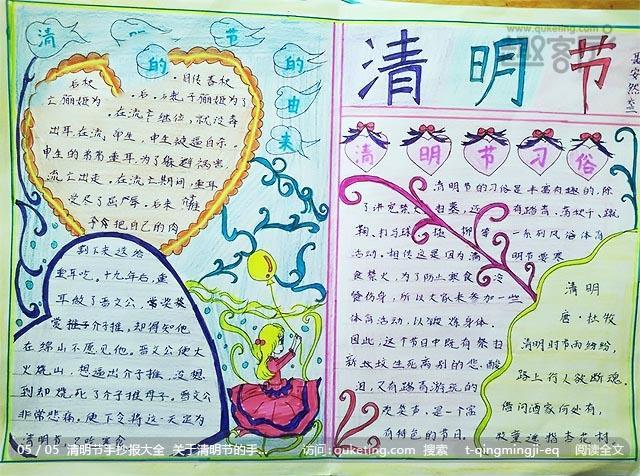 清明节的由来
后权
相传春秋
亡俪姬为
在流亡继位,就没毒
出耳在流
申生,申生被逼自杀.
申生的弟弟重耳,为了躲避祸害,
流亡出走.在流亡期间,重耳
受尽了屈辱.后来
予推把自己的肉
割下来送给
重耳吃.十九年后,重
耳做了晋文公,
爱 介子推,却得知他
在绵山不愿见他.晋文公便大
火烧山,想逼出介子推,没想
到却烧死了介子推母子.晋文公
非常悲痛.便下令将这一天定为
清明节
清明节
清明节习俗
清明节的习俗是丰富有趣的,除
了讲究禁火、扫墓,还有踏青、荡秋千、蹴
鞠、打马球、插柳等一系列风俗体育
活动.相传这是因为清明节要寒
食禁火,为了防止寒食冷
餐伤身,所以大家来参加一些
体育活动,以锻炼身体.
因此,这个节日中既有祭扫
新坟生死离别的悲酸
泪,又有踏青游玩的
欢笑声,是一个富
有特色的节日.
清明
唐·杜牧
清明时节雨纷纷,
路上行人欲断魂.
借问酒家何处有,
牧童遥指杏花村.
www.quketing.com
05 / 05 清明节手抄报大全 关于清明节的手...
访问:quketing.com 搜索 t-qingmingji-eq 阅读全文